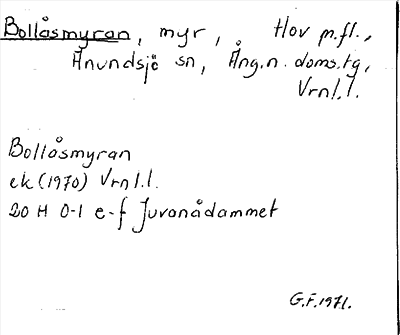 Bollåsmyran, myr, Hov m.fl.,
Anundsjö sn, Ång. n. doms.tg,
Vrnl.l.
Bollåsmyran
ek (1970) Vrnl.l.
20 H 0-1 e-f Juvanådammet
G.F. 1971.